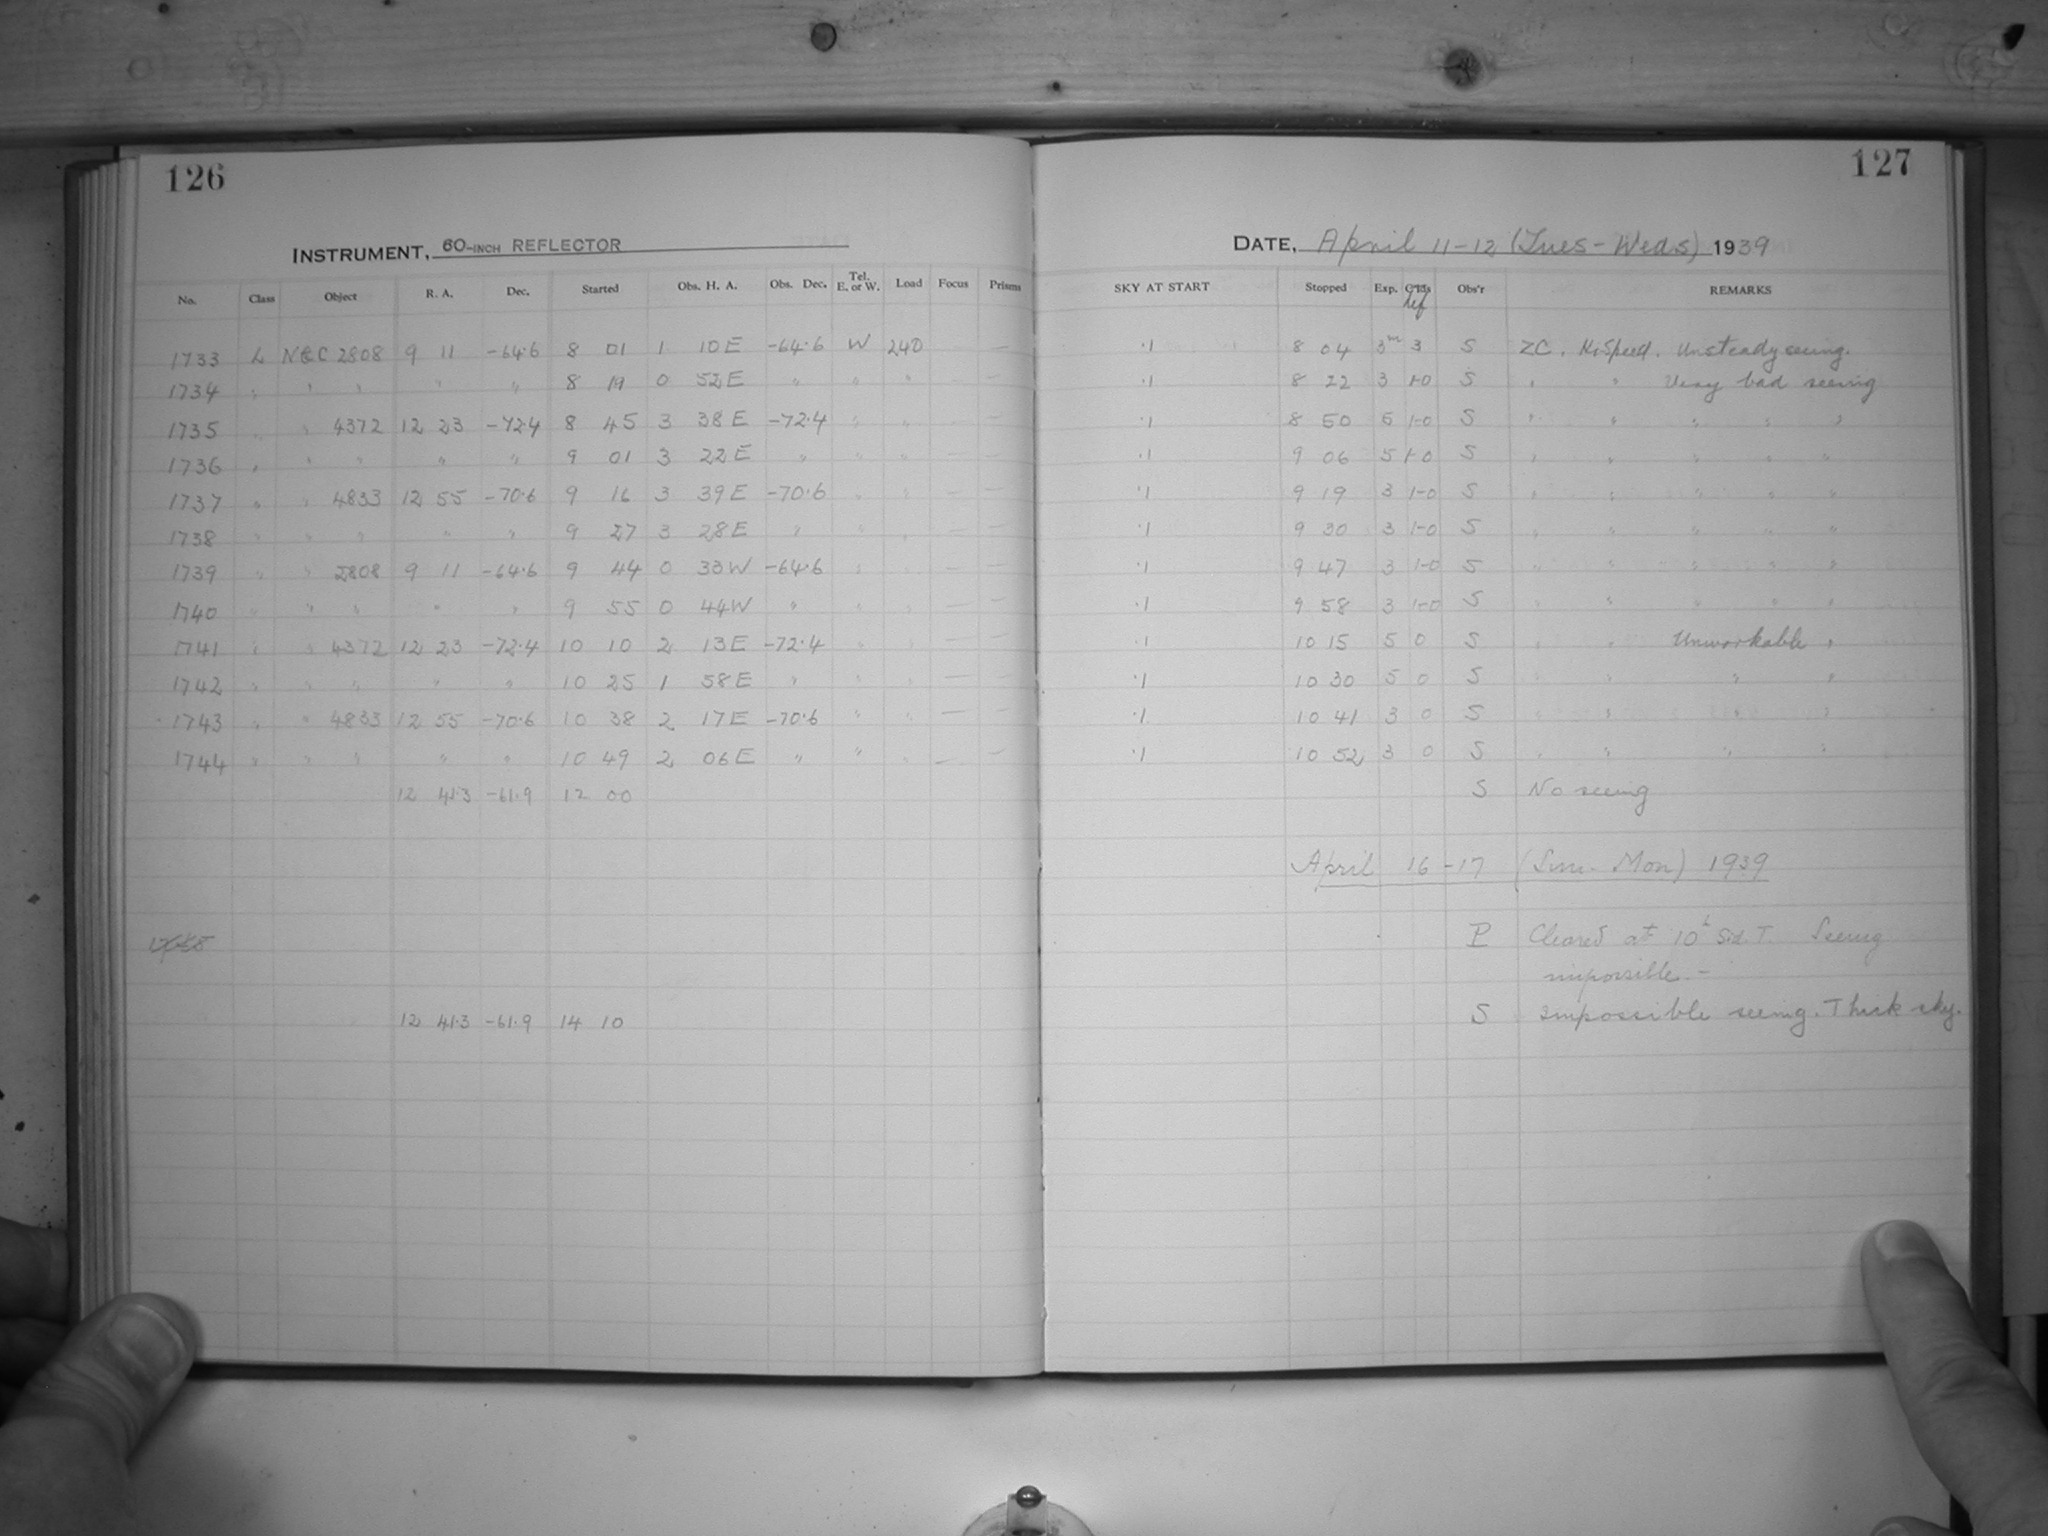 126
INSTRUMENT, 60-INCH REFLECTOR
No. Class Object R. A. Dec. Started Obs. H. A. Obs. Dec. Tel. E. or W. Load Focus Prisms
1733 L NGC 2808 9 11 -64.6 8 01 1 10 E -64.6 W 240 — —
1734 " " " " " 8 19 0 52 E " " " — —
1735 " " 4372 12 23 -72.4 8 45 3 38 E -72.4 " " — —
1736 " " " " " 9 01 3 22 E " " " — —
1737 " " 4833 12 55 -70.6 9 16 3 39 E -70.6 " " — —
1738 " " " " " 9 27 3 28 E " " " — —
1739 " " 2808 9 11 -64.6 9 44 0 33 W -64.6 " " — —
1740 " " " " " 9 55 0 44 W " " " — —
1741 " " 4372 12 23 -72.4 10 10 2 13 E -72.4 " " — —
1742 " " " " " 10 25 1 58 E " " " — —
1743 " " 4833 12 55 -70.6 10 38 2 17 E -70.6 " " — —
1744 " " " " " 10 49 2 06 E " " " — —
12 41.3 -61.9 12 00
12 41.3 -61.9 14 10
127
DATE, April 11-12 (Tues-Weds) 1939
SKY AT START Stopped Exp. Obs'r REMARKS
.1 8 04 3m 3 S ZC. Hi Speed. Unsteady seeing.
.1 8 22 3 1-0 S " " Very bad seeing
.1 8 50 5 1-0 S " " " " "
.1 9 06 5 1-0 S " " " " "
.1 9 19 3 1-0 S " " " " "
.1 9 30 3 1-0 S " " " " "
.1 9 47 3 1-0 S " " " " "
.1 9 58 3 1-0 S " " " " "
.1 10 15 5 0 S " " Unworkable "
.1 10 30 5 0 S " " " "
.1 10 41 3 0 S " " " "
.1 10 52 3 0 S " " " "
S No seeing
April 16-17 (Sun-Mon) 1939
P Cleared at 10h Sid. T. Seeing
impossible. -
S Impossible seeing. Thick sky.